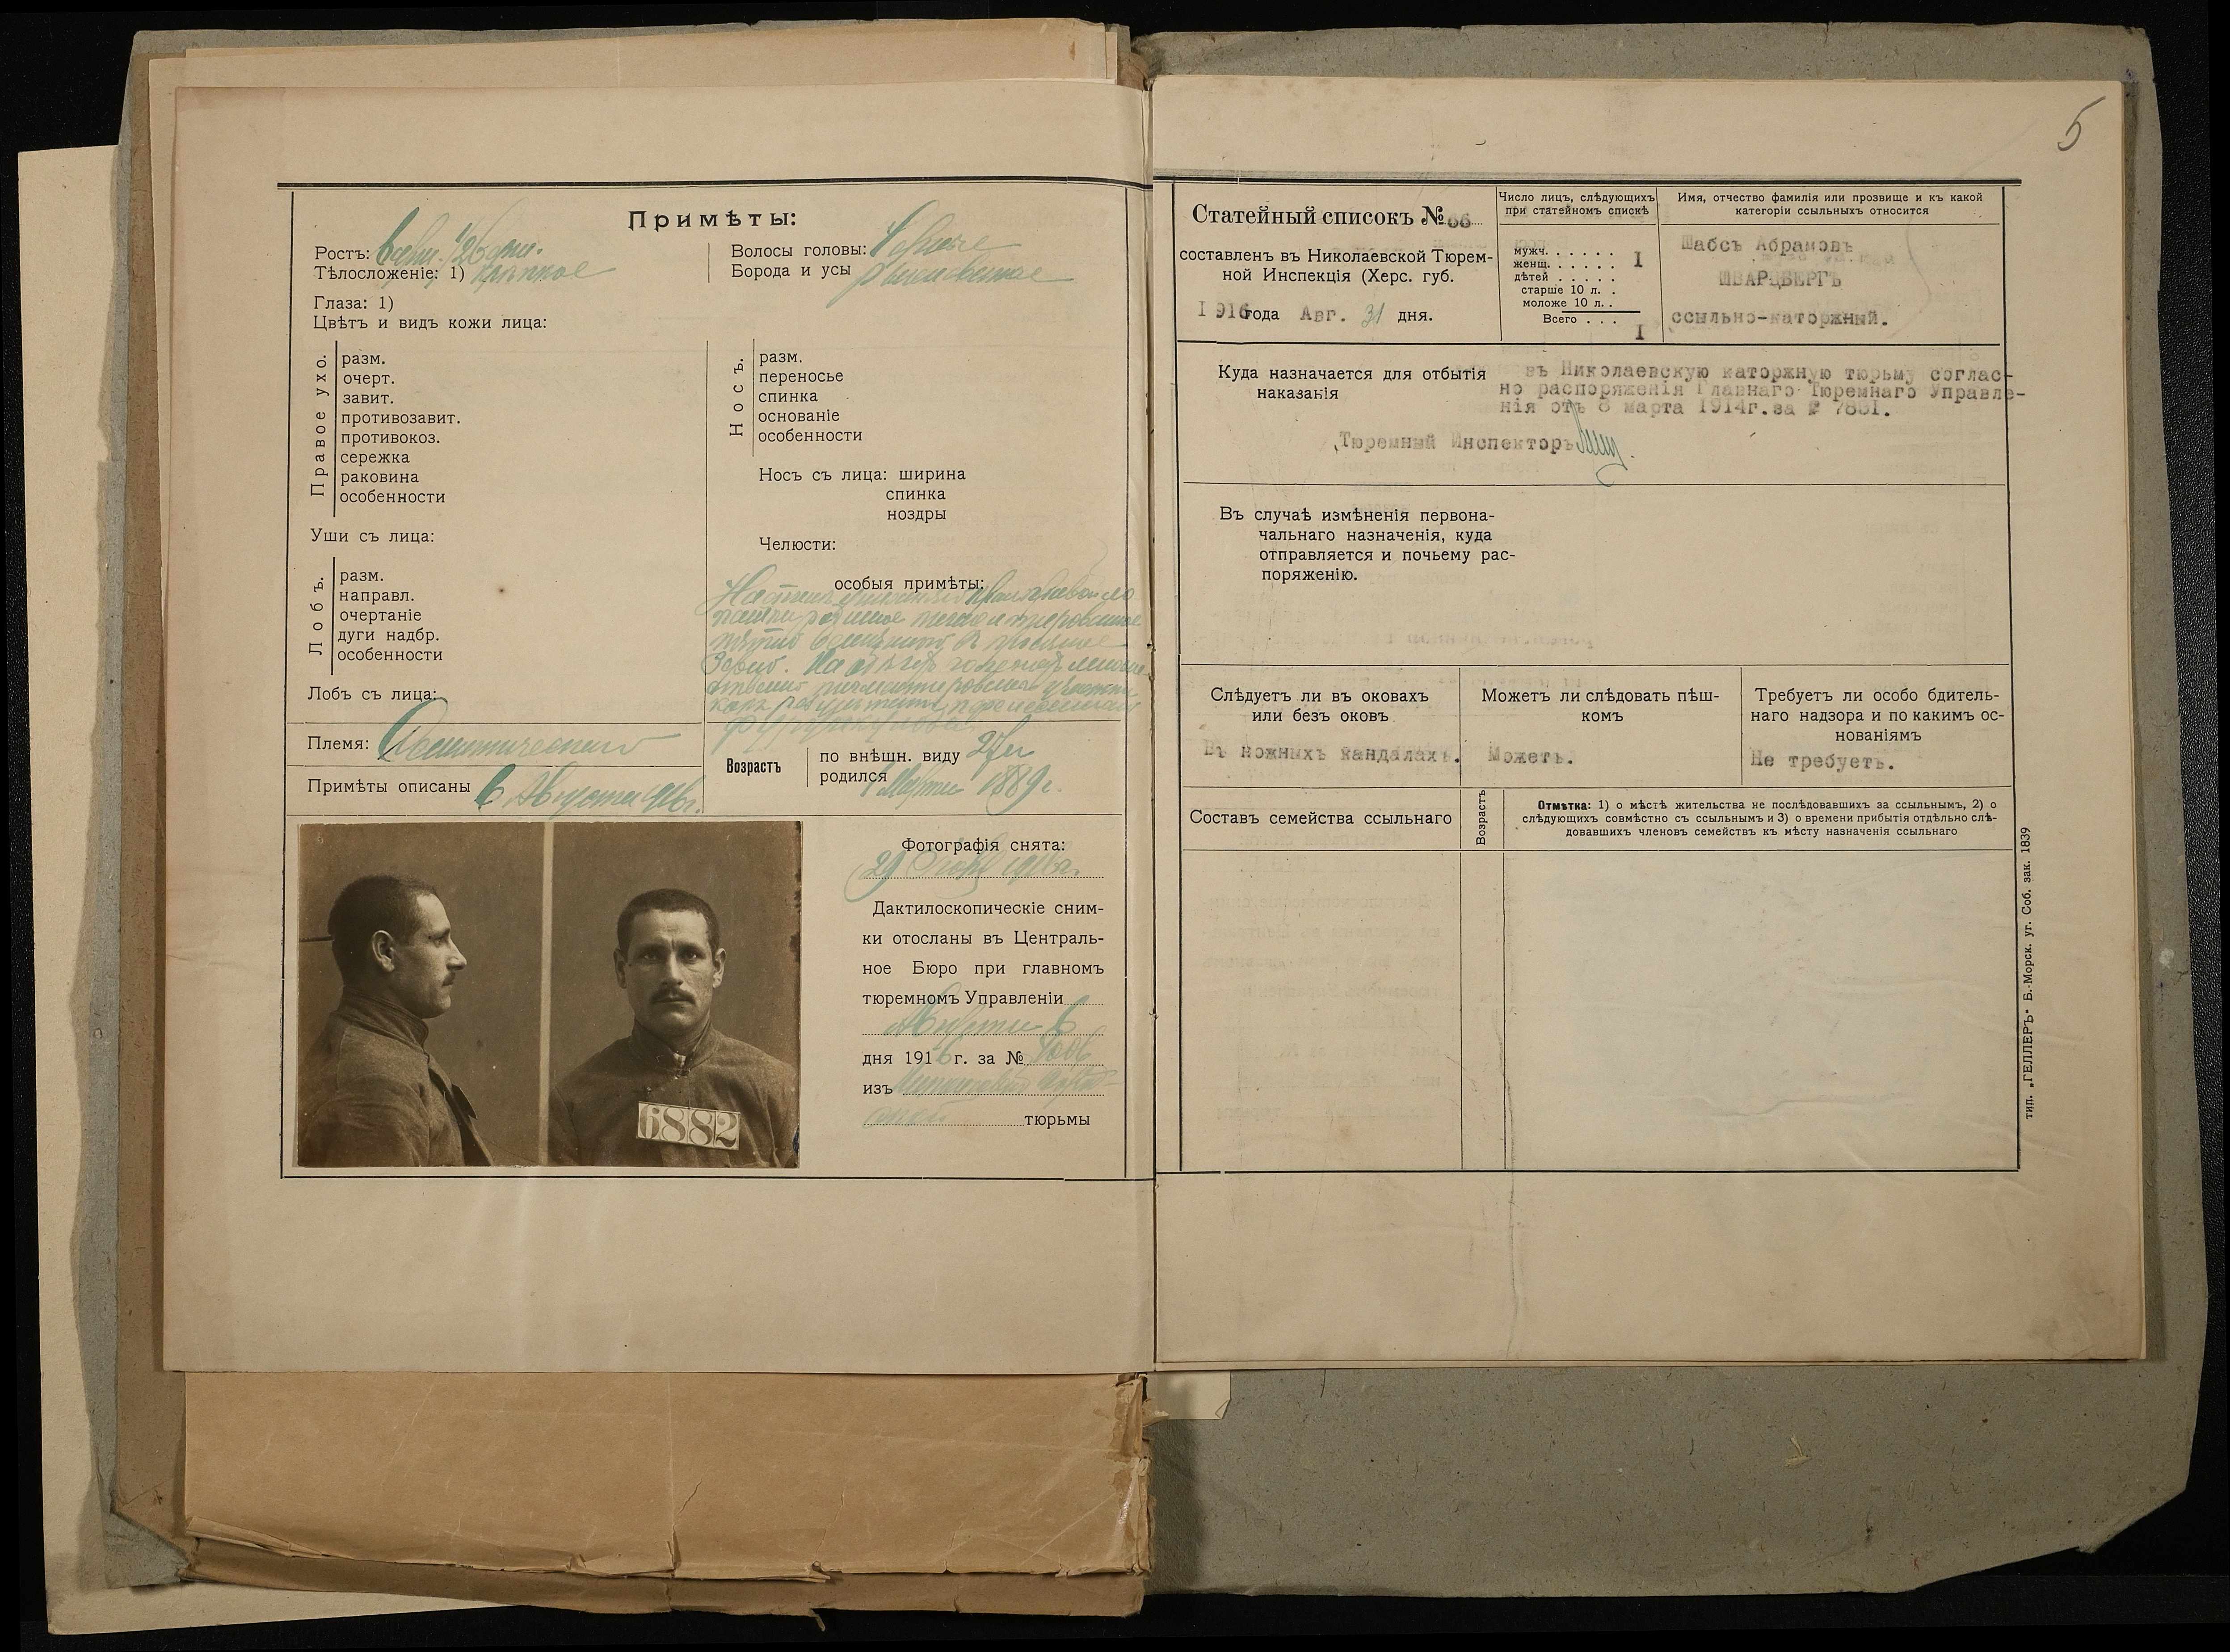 Примѣты:
Ростъ:
Тѣлосложеніе: 1) крѣпкое
Волосы головы: Черные
Борода и усы рыжеватые
Глаза: 1)
Цвѣтъ и видъ кожи лица:
Правое ухо.
разм.
очерт.
завит.
противозавит.
противокоз.
сережка
раковина
особенности
Уши съ лица:
Лобъ.
разм.
направл.
очертаніе
дуги надбр.
особенности
Лобъ съ лица:
Носъ.
разм.
переносье
спинка
основаніе
особенности
Носъ съ лица: ширина
спинка
ноздры
Челюсти:
особыя примѣты:
Племя:
Примѣты описаны 6 Августа 1916г.
Возрастъ
по внѣшн. виду 27 л
родился 1 Марта 1889г.
6882
Фотографія снята:
29 1916г.
Дактилоскопическіе сним-
ки отосланы въ Централь-
ное Бюро при главномъ
тюремномъ Управленіи
Августа 6
дня 1916 г. за №
изъ
тюрьмы
5
Статейный списокъ № 66
составленъ въ Николаевской Тюрем-
ной Инспекція (Херс. губ.
1916 года Авг. 31 дня.
Число лицъ, слѣдующихъ
при статейномъ спискѣ
мужч. . . . . . . I
женщ. . . . . . .
дѣтей . . . . . .
старше 10 л. . .
моложе 10 л. . .
Всего . . . I
Имя, отчество фамилія или прозвище и къ какой
категоріи ссыльныхъ относится
Шабсъ Абрамовъ
ШВАРЦБЕРГЪ
ссыльно-каторжный.
Куда назначается для отбытія
наказанія
въ Николаевскую каторжную тюрьму соглас-
но распоряженія Главнаго Тюремнаго Управле-
нія отъ 8 марта 1914г. за №
Тюремный Инспекторъ
Въ случаѣ измѣненія первона-
чальнаго назначенія, куда
отправляется и почьему рас-
поряженію.
Слѣдуетъ ли въ оковахъ
или безъ оковъ
Въ ножныхъ кандалахъ.
Можетъ ли слѣдовать пѣш-
комъ
Можетъ.
Требуетъ ли особо бдитель-
наго надзора и по какимъ ос-
нованіямъ
Не требуетъ.
Составъ семейства ссыльнаго
Возрастъ
Отмѣтка: 1) о мѣстѣ жительства не послѣдовавшихъ за ссыльнымъ, 2) о
слѣдующихъ совмѣстно съ ссыльнымъ и 3) о времени прибытія отдѣльно слѣ-
довавшихъ членовъ семействъ къ мѣсту назначенія ссыльнаго
тип. „ГЕЛЛЕРЪ" Б.-Морск. уг. Соб. зак. 1839